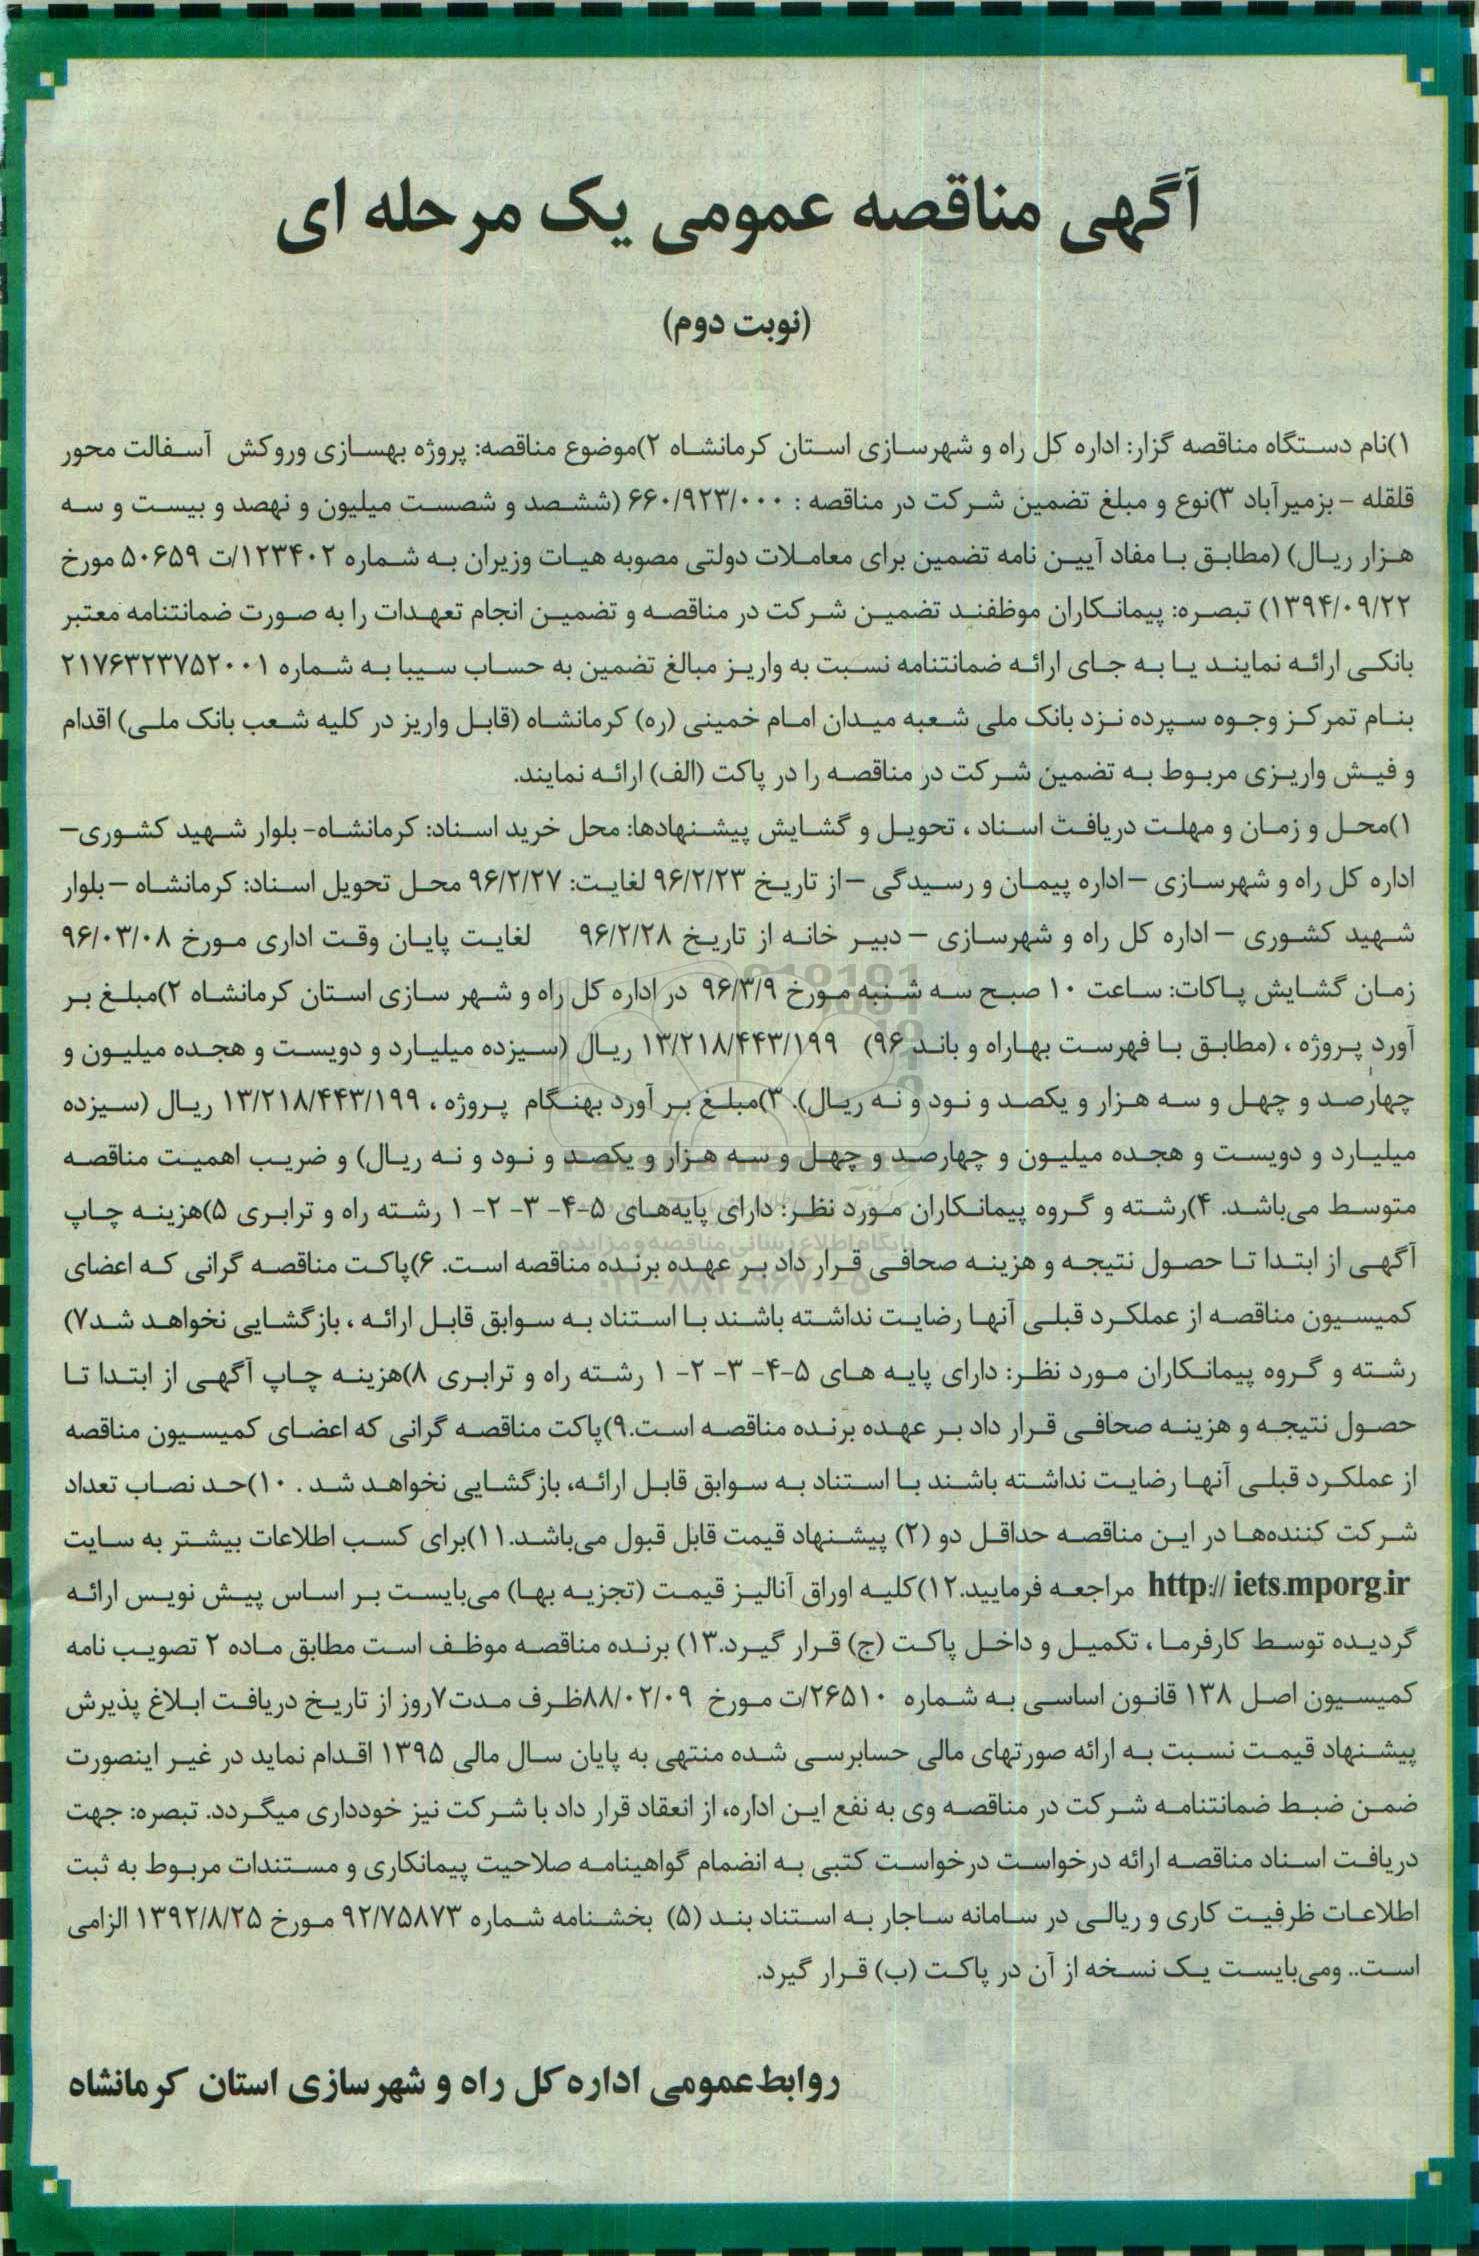 آگهی مناقصه عمومی یک مرحله ای
(نوبت دوم)
۱)نام دستگاه مناقصه گزار: اداره کل راه و شهرسازی استان کرمانشاه ۲)موضوع مناقصه: پروژه بهسازی وروکش آسفالت محور
قلقله – بزمیرآباد ۳)نوع و مبلغ تضمین شرکت در مناقصه : ۶۶۰/۹۲۳/۰۰۰ (ششصد و شصت میلیون و نهصد و بیست و سه
هزار ریال) (مطابق با مفاد آیین نامه تضمین برای معاملات دولتی مصوبه هیات وزیران به شماره ۱۲۳۴۰۲/ت ۵۰۶۵۹ مورخ
۱۳۹۴/۰۹/۲۲) تبصره: پیمانکاران موظفند تضمین شرکت در مناقصه و تضمین انجام تعهدات را به صورت ضمانتنامه معتبر
بانکی ارائه نمایند یا به جای ارائه ضمانتنامه نسبت به واریز مبالغ تضمین به حساب سیبا به شماره ۲۱۷۶۳۲۳۷۵۲۰۰۱
بنام تمرکز وجوه سپرده نزد بانک ملی شعبه میدان امام خمینی (ره) کرمانشاه (قابل واریز در کلیه شعب بانک ملی) اقدام
و فیش واریزی مربوط به تضمین شرکت در مناقصه را در پاکت (الف) ارائه نمایند.
۱)محل و زمان و مهلت دریافت اسناد ، تحویل و گشایش پیشنهادها: محل خرید اسناد: کرمانشاه- بلوار شهید کشوری–
اداره کل راه و شهرسازی –اداره پیمان و رسیدگی –از تاریخ ۹۶/۲/۲۳ لغایت: ۹۶/۲/۲۷ محل تحویل اسناد: کرمانشاه –بلوار
شهید کشوری – اداره کل راه و شهرسازی – دبیر خانه از تاریخ ۹۶/۲/۲۸ لغایت پایان وقت اداری مورخ ۹۶/۰۳/۰۸
زمان گشایش پاکات: ساعت ۱۰ صبح سه شنبه مورخ ۹۶/۳/۹ در اداره کل راه و شهر سازی استان کرمانشاه ۲)مبلغ بر
آورد پروژه ، (مطابق با فهرست بهاراه و باند ۹۶) ۱۳/۲۱۸/۴۴۳/۱۹۹ ریال (سیزده میلیارد و دویست و هجده میلیون و
چهارصد و چهل و سه هزار و یکصد و نود و نه ریال). ۳)مبلغ بر آورد بهنگام پروژه ، ۱۳/۲۱۸/۴۴۳/۱۹۹ ریال (سیزده
میلیارد و دویست و هجده میلیون و چهارصد و چهل و سه هزار و یکصد و نود و نه ریال) و ضریب اهمیت مناقصه
متوسط می‌باشد. ۴)رشته و گروه پیمانکاران مورد نظر: دارای پایه‌های ۵-۴- ۳- ۲- ۱ رشته راه و ترابری ۵)هزینه چاپ
آگهی از ابتدا تا حصول نتیجه و هزینه صحافی قرار داد بر عهده برنده مناقصه است. ۶)پاکت مناقصه گرانی که اعضای
کمیسیون مناقصه از عملکرد قبلی آنها رضایت نداشته باشند با استناد به سوابق قابل ارائه ، بازگشایی نخواهد شد۷)
رشته و گروه پیمانکاران مورد نظر: دارای پایه های ۵-۴- ۳- ۲- ۱ رشته راه و ترابری ۸)هزینه چاپ آگهی از ابتدا تا
حصول نتیجه و هزینه صحافی قرار داد بر عهده برنده مناقصه است.۹)پاکت مناقصه گرانی که اعضای کمیسیون مناقصه
از عملکرد قبلی آنها رضایت نداشته باشند با استناد به سوابق قابل ارائه، بازگشایی نخواهد شد . ۱۰)حد نصاب تعداد
شرکت کننده‌ها در این مناقصه حداقل دو (۲) پیشنهاد قیمت قابل قبول می‌باشد.۱۱)برای کسب اطلاعات بیشتر به سایت
http:// iets.mporg.ir مراجعه فرمایید.۱۲)کلیه اوراق آنالیز قیمت (تجزیه بها) می‌بایست بر اساس پیش نویس ارائه
گردیده توسط کارفرما ، تکمیل و داخل پاکت (ج) قرار گیرد.۱۳) برنده مناقصه موظف است مطابق ماده ۲ تصویب نامه
کمیسیون اصل ۱۳۸ قانون اساسی به شماره ۲۶۵۱۰/ت مورخ ۸۸/۰۲/۰۹ظرف مدت۷روز از تاریخ دریافت ابلاغ پذیرش
پیشنهاد قیمت نسبت به ارائه صورتهای مالی حسابرسی شده منتهی به پایان سال مالی ۱۳۹۵ اقدام نماید در غیر اینصورت
ضمن ضبط ضمانتنامه شرکت در مناقصه وی به نفع این اداره، از انعقاد قرار داد با شرکت نیز خودداری میگردد. تبصره: جهت
دریافت اسناد مناقصه ارائه درخواست درخواست کتبی به انضمام گواهینامه صلاحیت پیمانکاری و مستندات مربوط به ثبت
اطلاعات ظرفیت کاری و ریالی در سامانه ساجار به استناد بند (۵) بخشنامه شماره ۹۲/۷۵۸۷۳ مورخ ۱۳۹۲/۸/۲۵ الزامی
است.. ومی‌بایست یک نسخه از آن در پاکت (ب) قرار گیرد.
روابط‌عمومی اداره کل راه و شهرسازی استان کرمانشاه